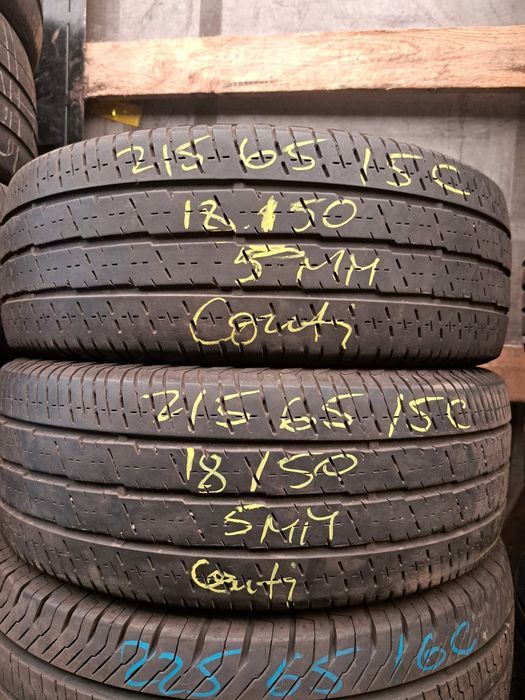 215 65 15C
18.150
5 MM
Conti
215 65 15C
18/50
5 MM
Conti
225 65 16C